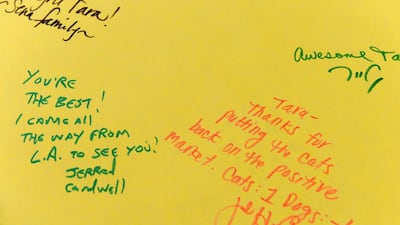 Tara!
Sena family
Awesome Ta
YOU'RE
THE BEST!
I CAME ALL
THE WAY FROM
L.A. TO SEE YOU!
JERROD
CARDWELL
Tara-
Thanks for
putting the cats
back on the positive
market. Cats: 1 Dogs: -1